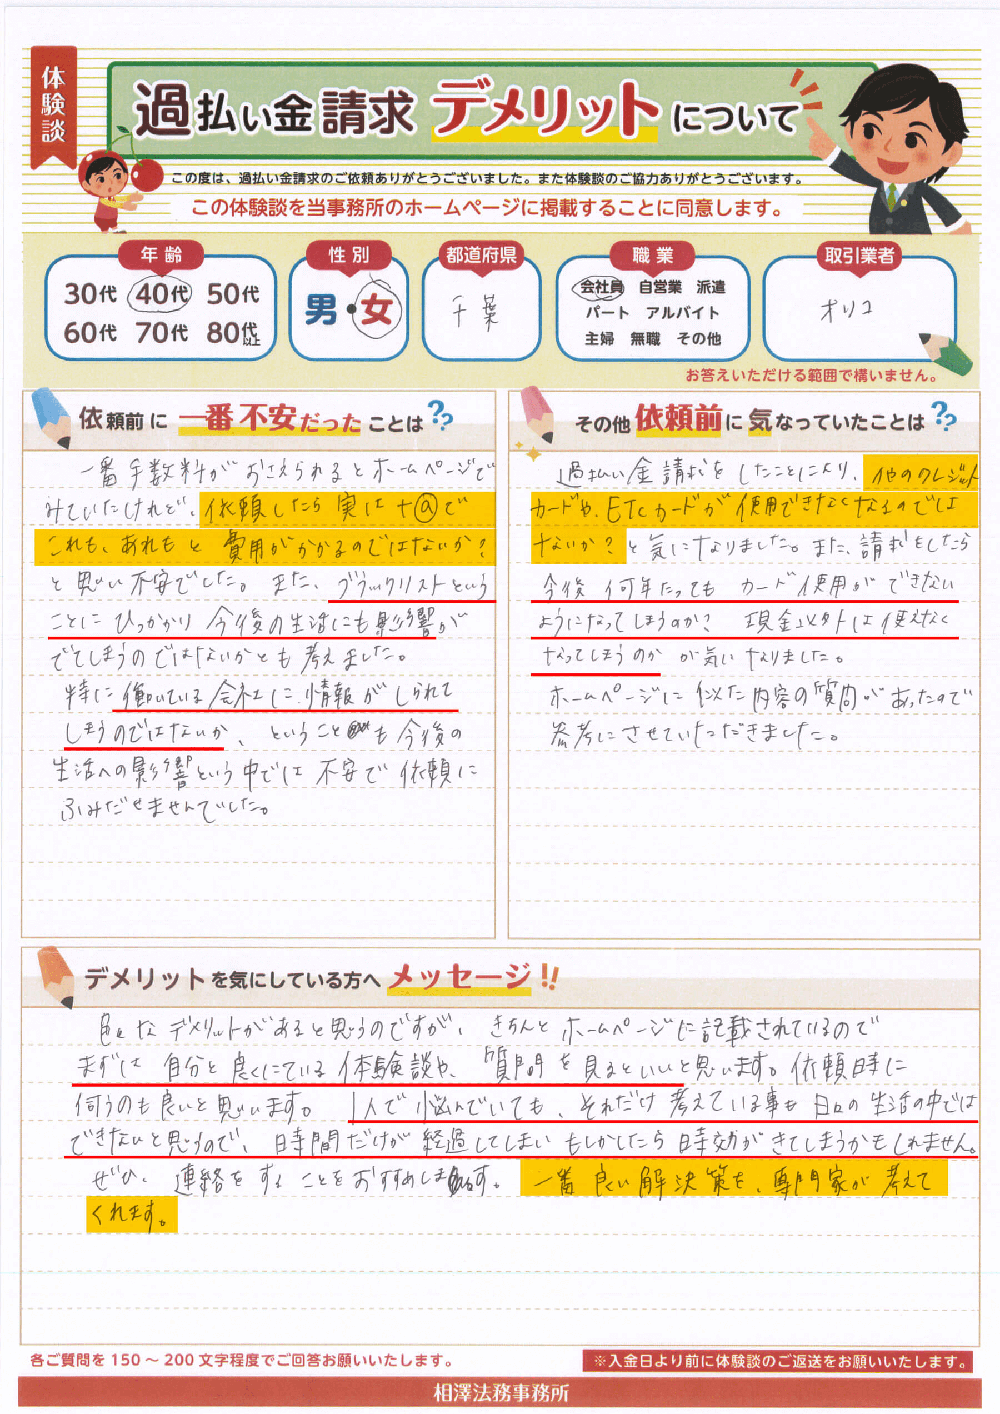 体験談
過払い金請求 デメリットについて
この度は、過払い金請求のご依頼ありがとうございました。また体験談のご協力ありがとうございます。
この体験談を当事務所のホームページに掲載することに同意します。
年齢
30代 40代 50代
60代 70代 80代以上
性別
男・女
都道府県
千葉
職業
会社員 自営業 派遣
パート アルバイト
主婦 無職 その他
取引業者
オリコ
お答えいただける範囲で構いません。
依頼前に 一番不安だった ことは??
一番手数料がおさえられるとホームページで
みていたけれど、依頼したら実は+@で
これも、あれもと費用がかかるのではないか?
と思い不安でした。また、ブラックリストという
ことにひっかかり今後の生活にも影響が
でてしまうのではないかとも考えました。
特に働いている会社に情報がしられて
しまうのではないか、ということも今後の
生活への影響という中では不安で依頼に
ふみだせませんでした。
その他 依頼前に 気なっていたことは??
過払い金請求をしたことにより、他のクレジット
カードや、ETCカードが使用できなくなるのでは
ないか?と気になりました。また、請求をしたら
今後何年たってもカード使用ができない
ようになってしまうのか?現金以外は使えなく
なってしまうのかが気になりました。
ホームページに似た内容の質問があったので
参考にさせていただきました。
デメリットを気にしている方へ メッセージ!!
色々なデメリットがあると思うのですが、きちんとホームページに記載されているので
まずは自分と良くにている体験談や、質問を見るといいと思います。依頼時に
伺うのも良いと思います。1人で悩んでいても、それだけ考えている事も日々の生活の中では
できないと思うので、時間だけが経過してしまいもしかしたら時効がきてしまうかもしれません。
ぜひ、連絡をすることをおすすめします。一番良い解決策を、専門家が考えて
くれます。
各ご質問を150～200文字程度でご回答お願いいたします。
※入金日より前に体験談のご返送をお願いいたします。
相澤法務事務所